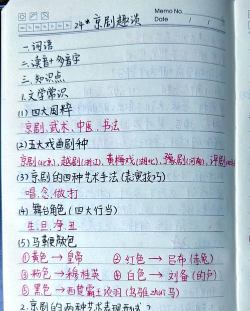 Memo No.
Date / /
24* 京剧趣谈
一、词语
二、读音+多音字
三、知识点
1.文学常识
(1)四大国粹
京剧、武术、中医、书法
(2)五大戏曲剧种
京剧(北京)、越剧(浙江)、黄梅戏(湖北)、豫剧(河南)、评剧
(3)京剧的四种艺术手法(表演技巧)
唱、念、做、打
(4)舞台角色(四大行当)
生、旦、净、丑
(5)马鞭颜色
①黄色→皇帝 ②红色→吕布(赤兔)
③粉色→穆桂英 ④白色→刘备(的卢)
⑤黑色→西楚霸王项羽(乌骓zhuī马)
2.京剧的两种艺术表现形式?